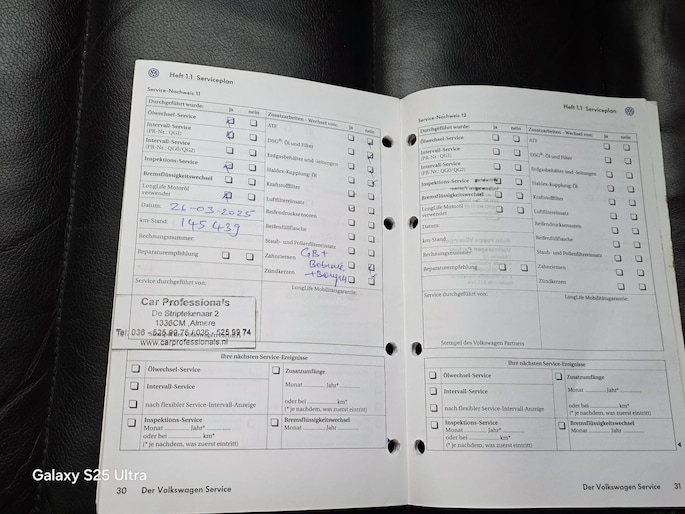 Heft 1.1 Serviceplan
Service-Nachweis 11
Durchgeführt wurde: ja nein Zusatzarbeiten – Wechsel von: ja nein
Ölwechsel-Service
Intervall-Service
(PR-Nr.: QG1)
Intervall-Service
(PR-Nr.: QG0/QG2)
Inspektions-Service
Bremsflüssigkeitswechsel
LongLife Motoröl
verwendet
Datum: 26-03-2025
km-Stand: 145439
Rechnungsnummer:
Reparaturempfehlung
ATF
DSG®: Öl und Filter
Erdgasbehälter und -leitungen
Haldex-Kupplung: Öl
Kraftstofffilter
Luftfiltereinsatz
Reifendruckensoren
Reifenfüllflasche
Staub- und Pollenfiltereinsatz
Zahnriemen GB+
Zündkerzen
Service durchgeführt von:
LongLife Mobilitätsgarantie:
Car Professionals
De Striptekenaar 2
1336CM ,Almere
www.carprofessionals.nl
Ihre nächsten Service-Ereignisse
Ölwechsel-Service
Intervall-Service
nach flexibler Service-Intervall-Anzeige
Zusatzumfänge
Monat Jahr*
oder bei km*
(* je nachdem, was zuerst eintritt)
Inspektions-Service
Monat Jahr*
oder bei km*
(* je nachdem, was zuerst eintritt)
Bremsflüssigkeitswechsel
Monat Jahr
30 Der Volkswagen Service
Heft 1.1 Serviceplan
Service-Nachweis 12
Durchgeführt wurde: ja nein Zusatzarbeiten – Wechsel von: ja nein
Ölwechsel-Service
Intervall-Service
(PR-Nr.: QG1)
Intervall-Service
(PR-Nr.: QG0/QG2)
Inspektions-Service
Bremsflüssigkeitswechsel
LongLife Motoröl
verwendet
Datum:
km-Stand:
Rechnungsnummer:
Reparaturempfehlung
ATF
DSG®: Öl und Filter
Erdgasbehälter und -leitungen
Haldex-Kupplung: Öl
Kraftstofffilter
Luftfiltereinsatz
Reifendruckensoren
Reifenfüllflasche
Staub- und Pollenfiltereinsatz
Zahnriemen
Zündkerzen
Service durchgeführt von:
LongLife Mobilitätsgarantie:
Stempel des Volkswagen Partners
Ihre nächsten Service-Ereignisse
Ölwechsel-Service
Intervall-Service
nach flexibler Service-Intervall-Anzeige
Zusatzumfänge
Monat Jahr*
oder bei km*
(* je nachdem, was zuerst eintritt)
Inspektions-Service
Monat Jahr*
oder bei km*
(* je nachdem, was zuerst eintritt)
Bremsflüssigkeitswechsel
Monat Jahr
Der Volkswagen Service 31
Galaxy S25 Ultra